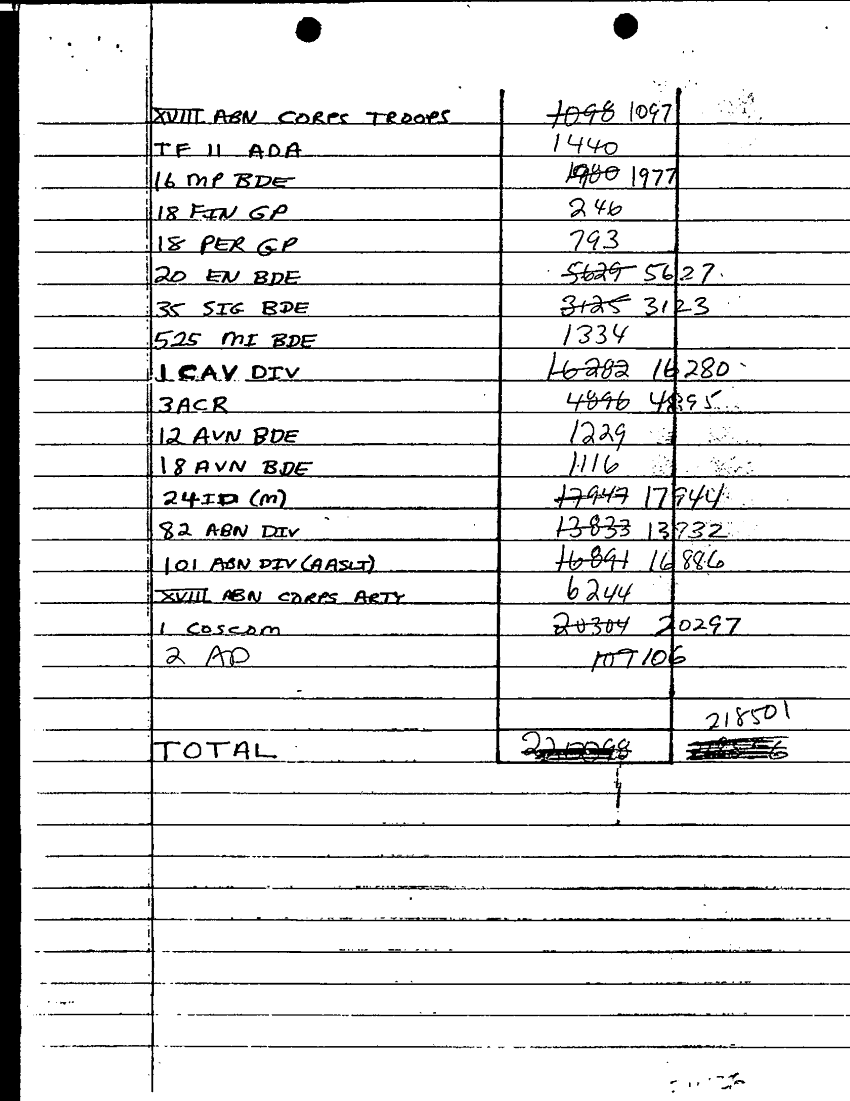 XVIII ABN CORPS TROOPS 1098 1097
TF 11 ADA 1440
16 MP BDE 1980 1977
18 FIN GP 246
18 PER GP 793
20 EN BDE 5629 5627
35 SIG BDE 3125 3123
525 MI BDE 1334
1 CAV DIV 16282 16280
3ACR 4896 4895
12 AVN BDE 1229
18 AVN BDE 1116
24ID (M) 17947 17944
82 ABN DIV 13833 13832
101 ABN DIV (AASLT) 16891 16886
XVIII ABN CORPS ARTY 6244
1 COSCOM 20304 20297
2 AD 107 106
218501
TOTAL